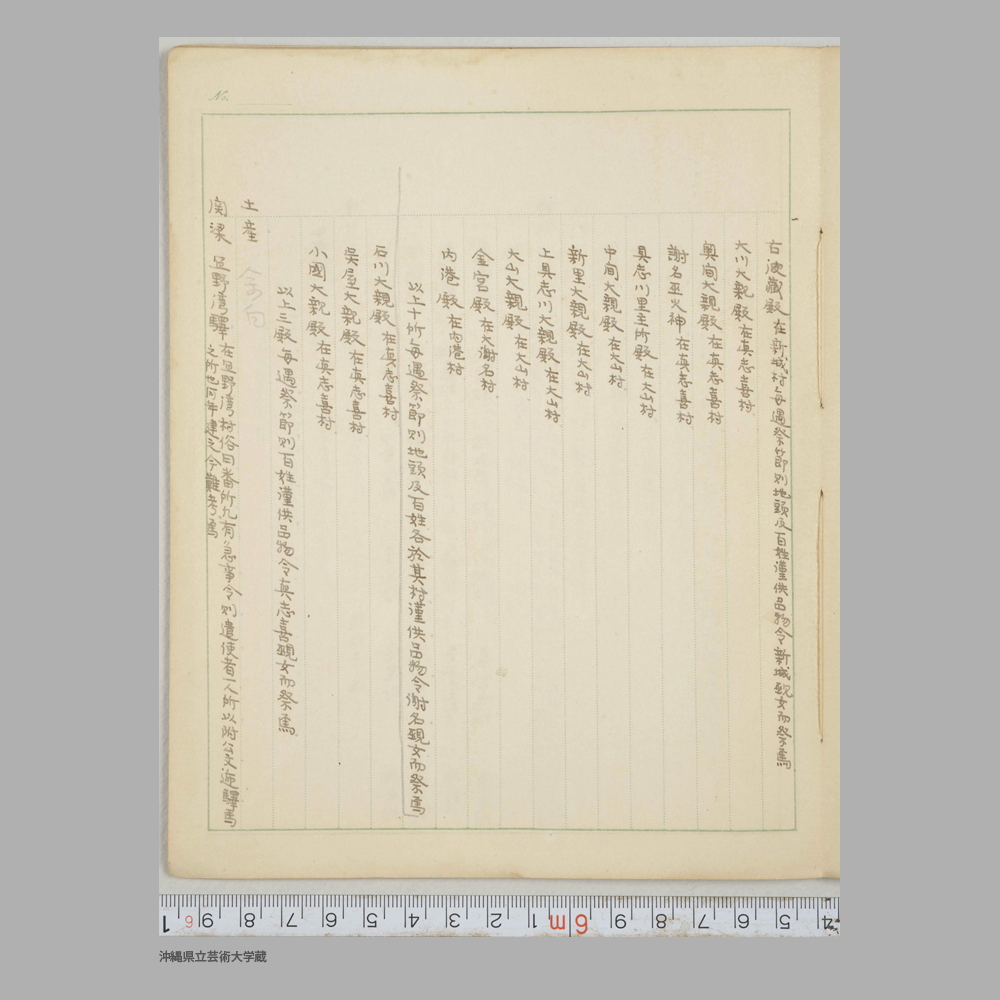 No.
古波蔵殿 在新城村毎遇祭節則地頭及百姓謹供品物令新城覡女而祭焉
大川大親殿 在真志喜村
奥間大親殿 在真志喜村
謝名巫火神 在真志喜村
具志川里主所殿 在大山村
中間大親殿 在大山村
新里大親殿 在大山村
上具志川大親殿 在大山村
大山大親殿 在大山村
金宮殿 在大謝名村
内港殿 在内港村
以上十所毎遇祭節則地頭及百姓各於其村謹供品物令謝名覡女而祭焉
石川大親殿 在真志喜村
呉屋大親殿 在真志喜村
小國大親殿 在真志喜村
以上三殿毎遇祭節則百姓謹供品物令真志喜覡女而祭焉
土産
関梁 宜野湾驛 在宜野湾村俗曰番所凡有急事令則遣使者一人所以附公文逓驛焉
之所也何年建之今難考焉
沖縄県立芸術大学蔵